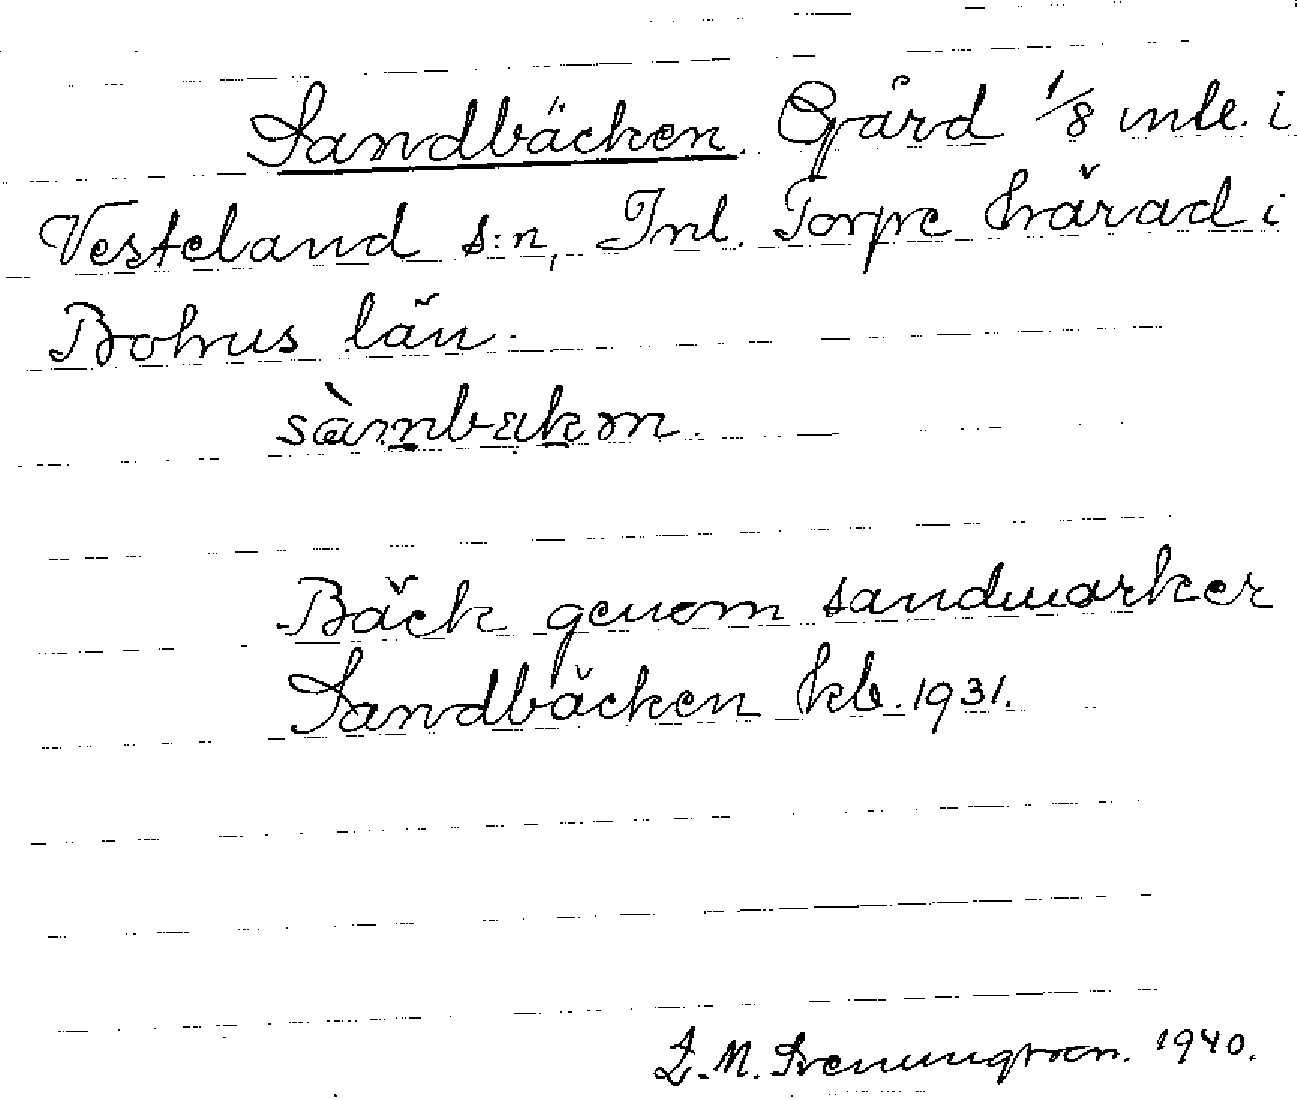 Sandbäcken. Gård 1/8 mtl. i
Vesteland s:n, Inl. Torpe härad i
Bohus län.
sàmbækәn.
Bäck genom sandmarker
Sandbäcken hk. 1931.
1940.